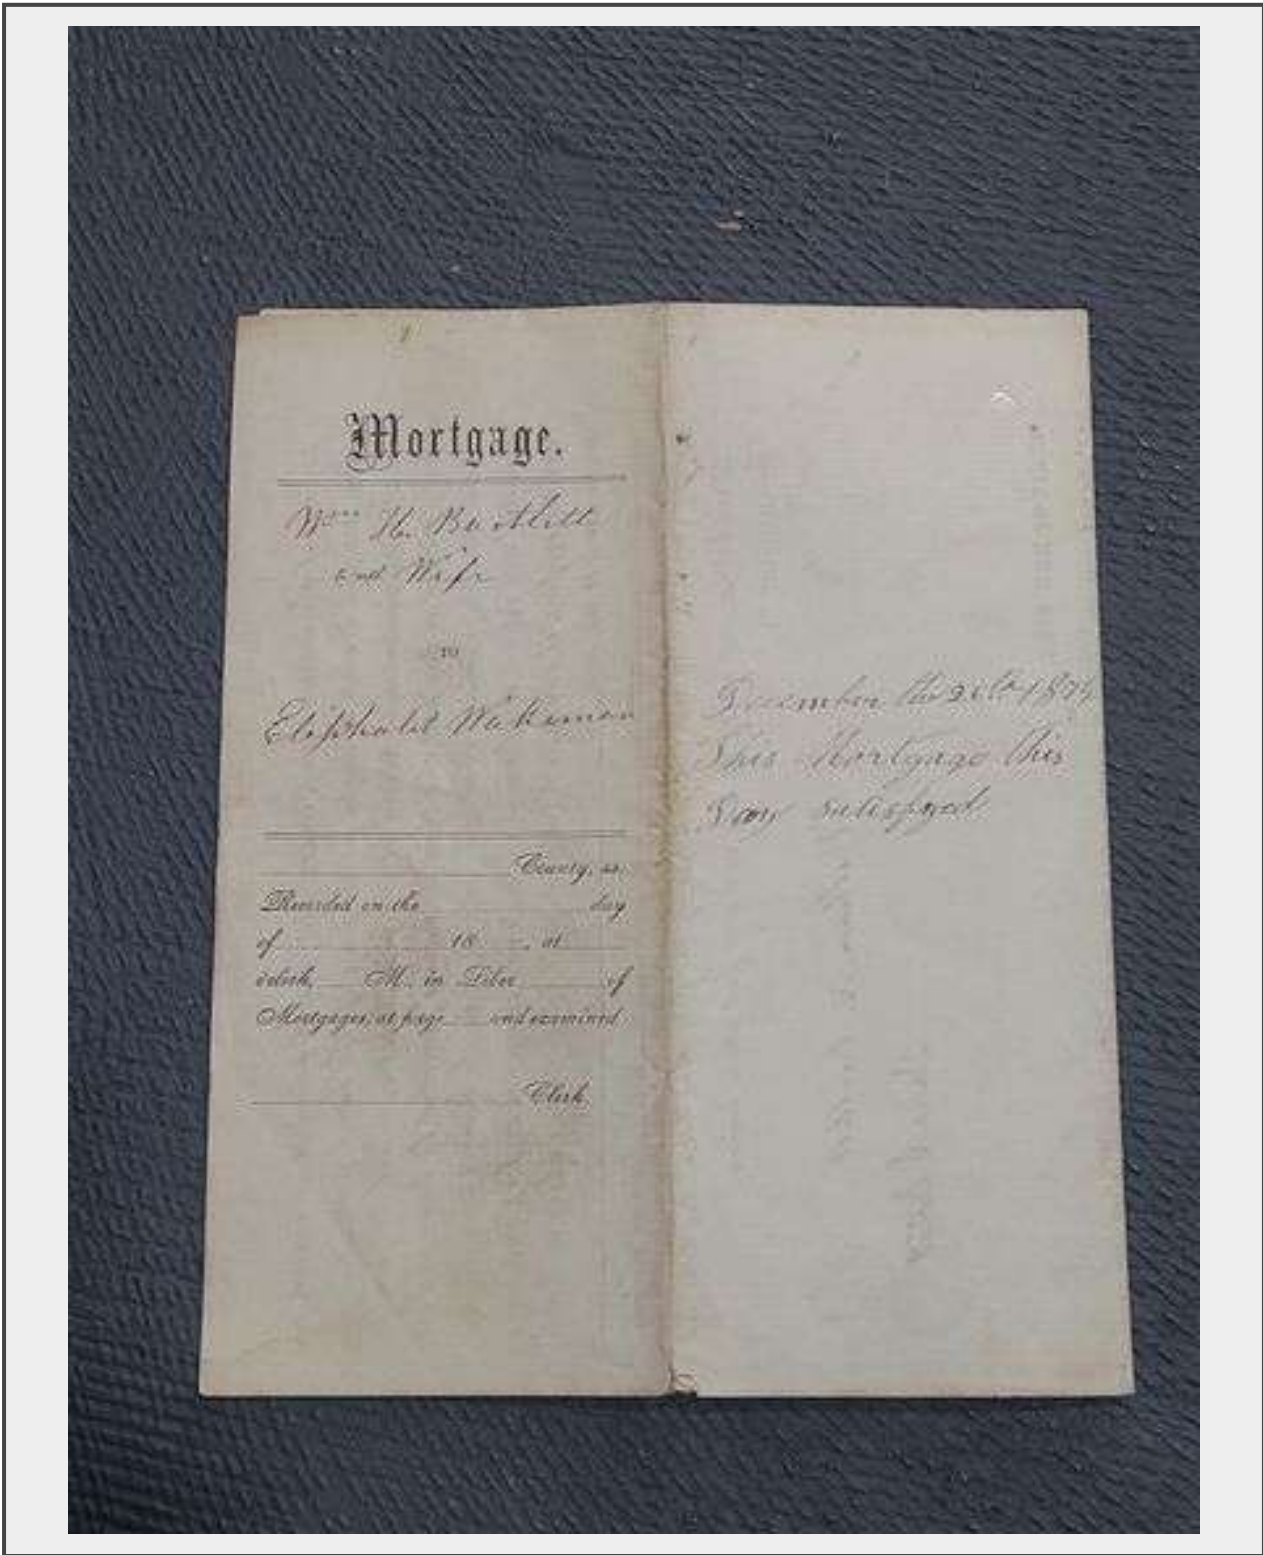 Mortgage.
Wm H. Bartlett
and Wife
TO
Eliphalet Wakeman
County, ss.
Recorded on the day
of 18 , at
o'clock, M., in Liber of
Mortgages, at page and examined
Clerk.
December the 26th
This Mortgage this
Day satisfyed